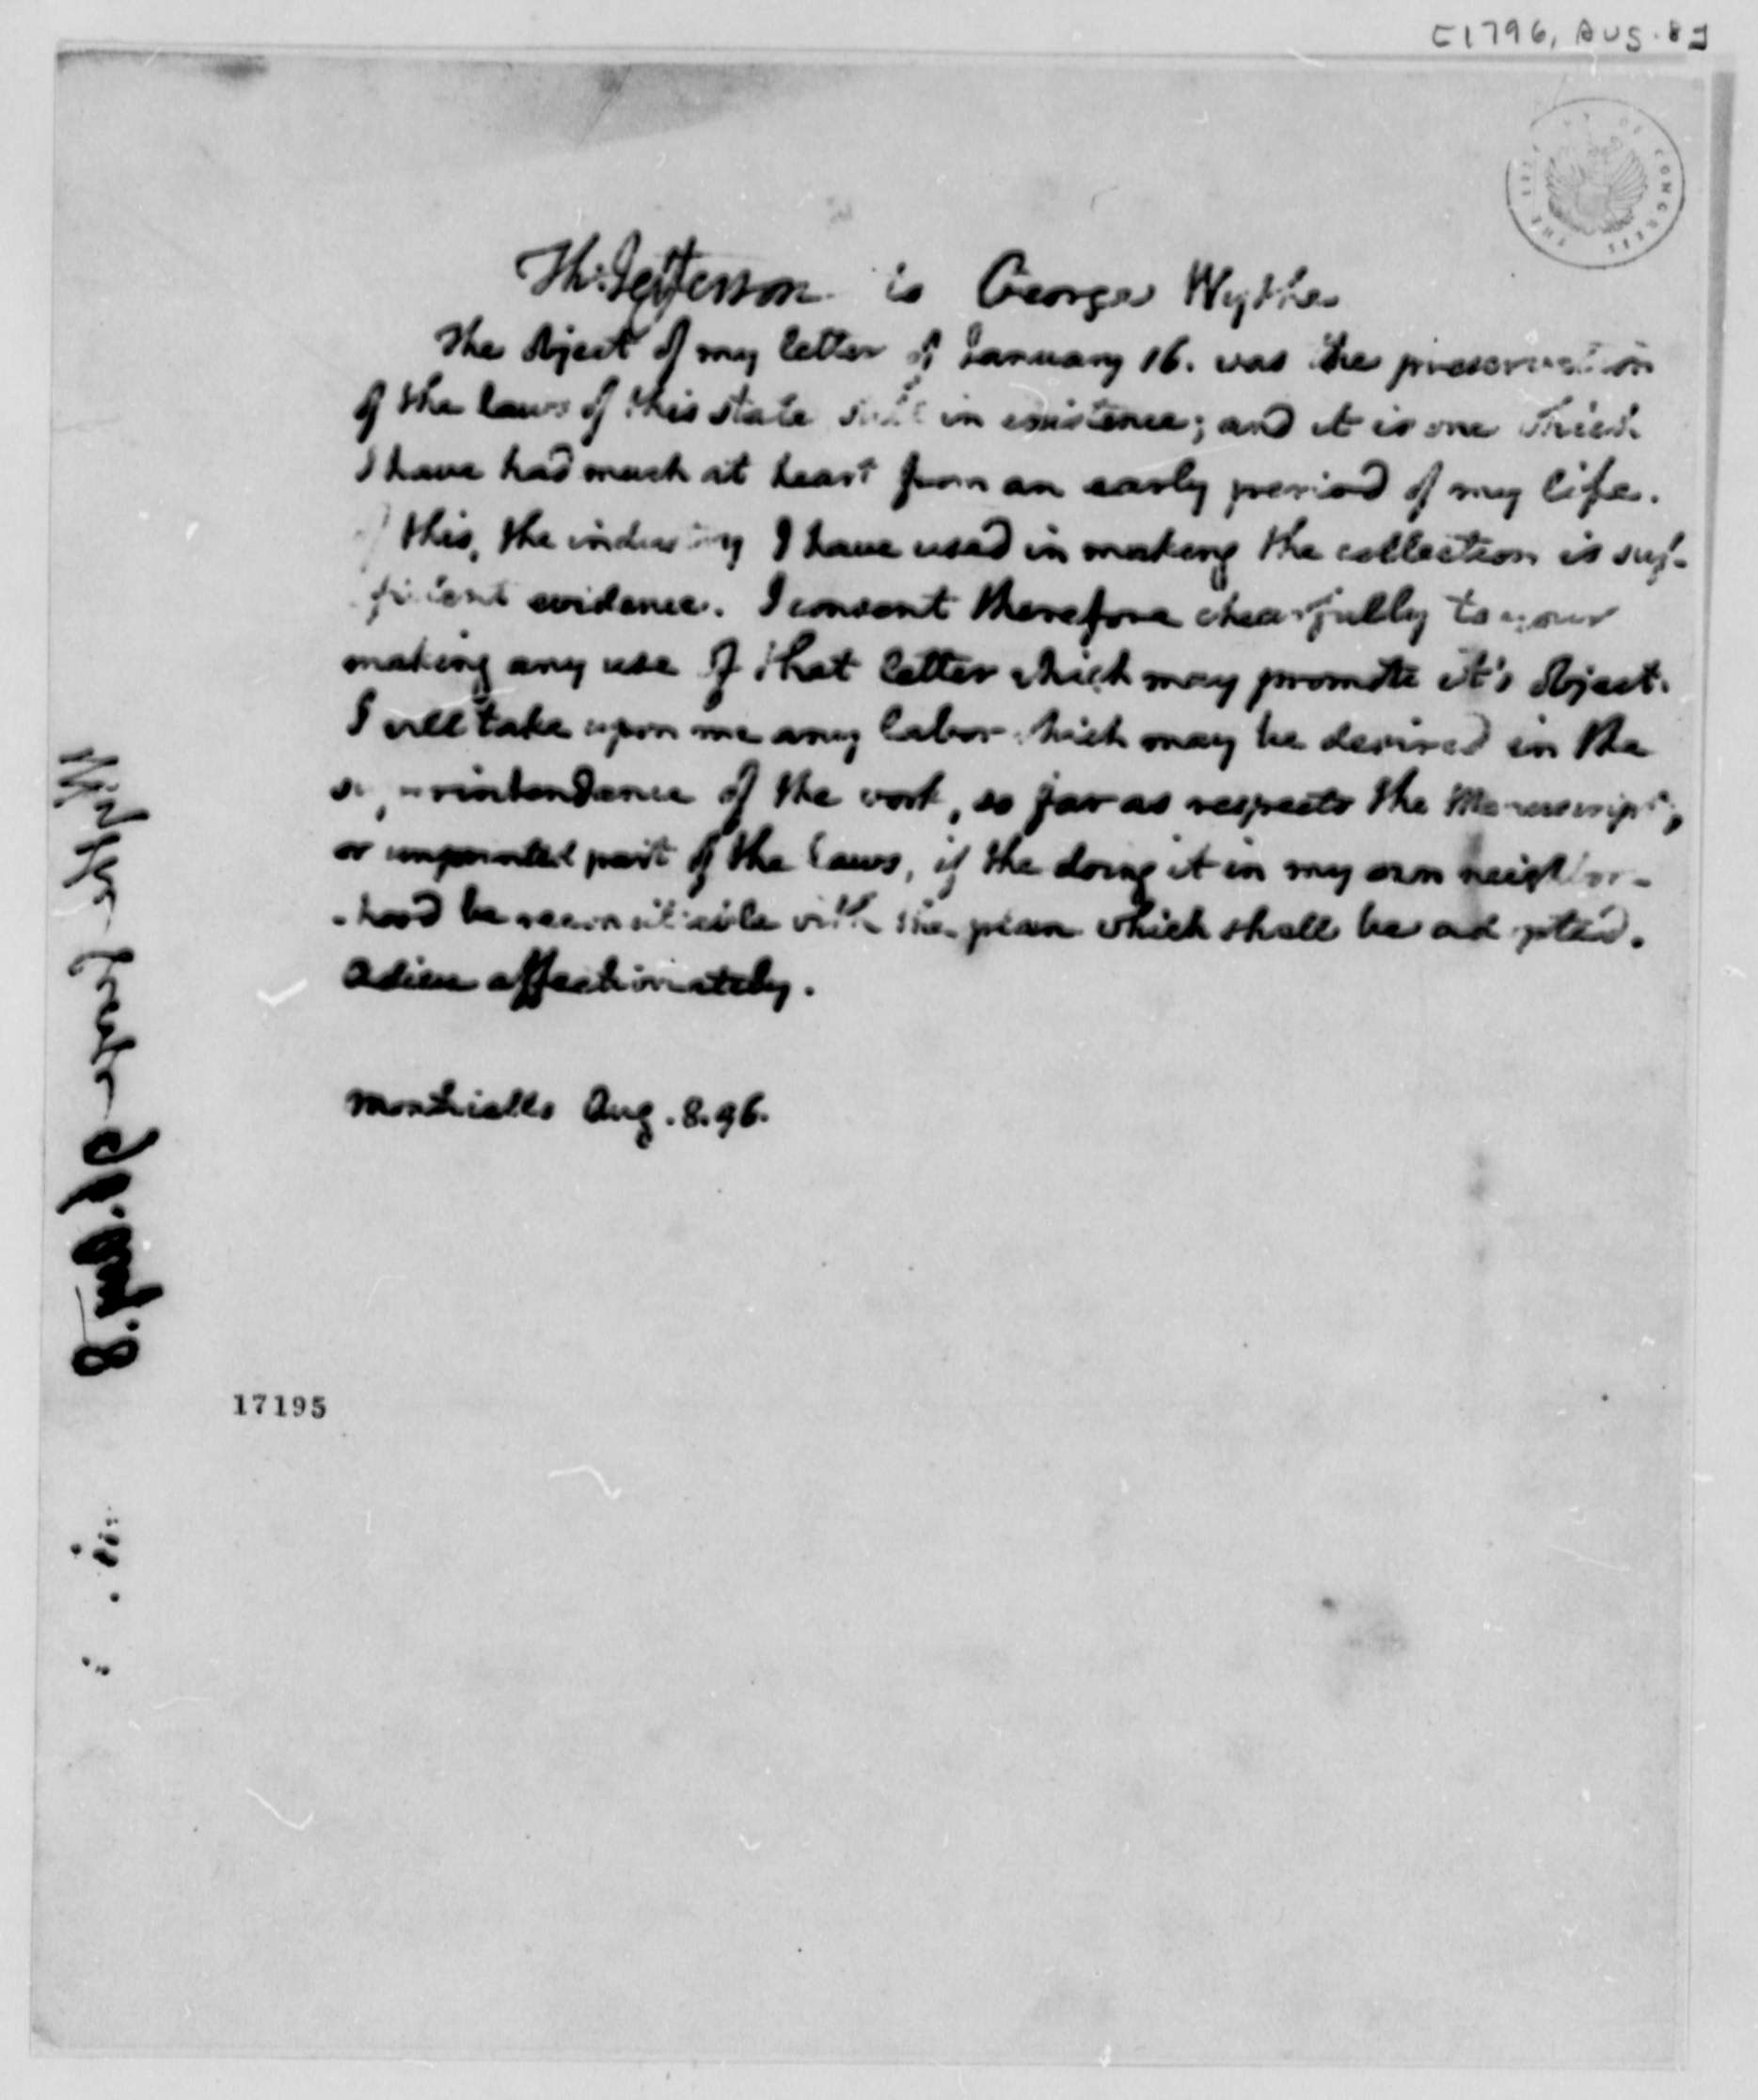 [1796, AUG. 8]
Th: Jefferson to George Wythe
The object of my letter of January 16. was the preservation
of the laws of this state still in existence; and it is one which
I have had much at heart from an early period of my life.
of this, the industry I have used in making the collection is suf-
ficient evidence. I consent therefore chearfully to your
making any use of that letter which may promote it's object.
I will take upon me any labor which may be desired in the
superintendance of the work, so far as respects the Manuscript,
or unprinted part of the laws, if the doing it in my own neighbor-
-hood be reconcileable with the plan which shall be adopted.
Adieu affectionately.
Monticello Aug. 8. 96.
Wythe George
Aug. 8
17195